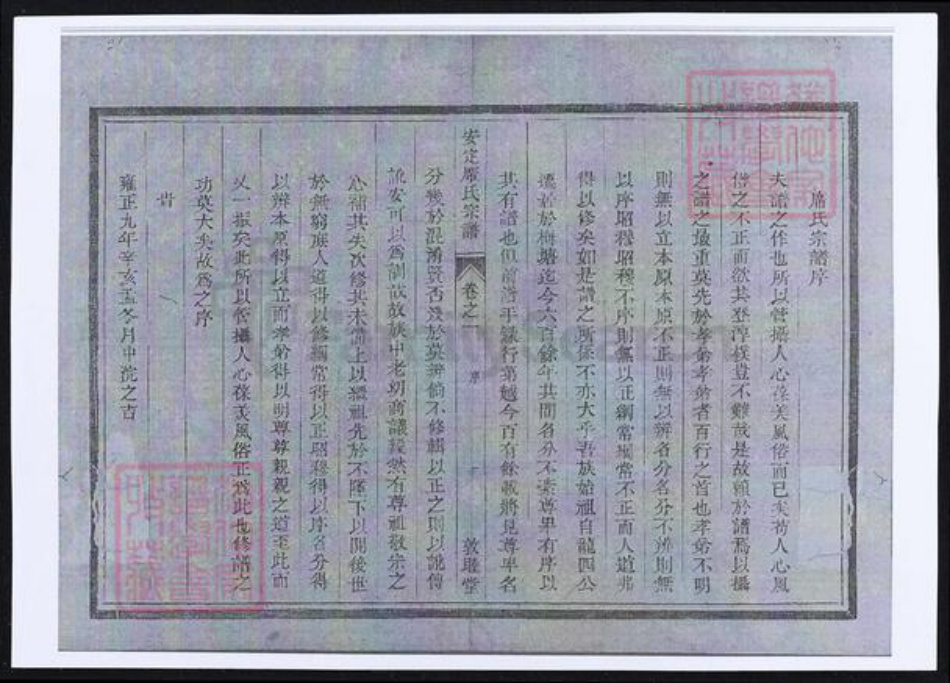 席氏宗譜序
夫譜之作也所以管攝人心葆美風俗而已矣苟人心風
俗之不正而欲其登淳樸豈不難哉是故賴於譜焉以攝
之譜之最重莫先於孝弟孝弟者百行之首也孝弟不明
則無以立本原本原不正則無以辨名分名分不辨則無
以序昭穆昭穆不序則無以正綱常綱常不正而人道弗
得以修矣如是譜之所係不亦大乎吾族始祖自龍四公
遷居於梅塘迄今六百餘年其間名分不紊尊卑有序以
其有譜也但前譜平錄行第越今百有餘載將見尊卑名
安定席氏宗譜 卷之一 序 敦睦堂
分幾於混淆賢否淺於莫辨倘不修輯以正之則以訛傳
訛安可以為訓哉故族中老幼商議毅然有尊祖敬宗之
心補其失次修其未備上以繼祖先於不墜下以開後世
於無窮庶人道得以修綱常得以正昭穆得以序名分得
以辨本原得以立而孝弟得以明尊尊親親之道至此而
又一振矣此所以管攝人心葆美風俗正為此也修譜之
功莫大矣故為之序
旹
雍正九年辛亥孟冬月中浣之吉